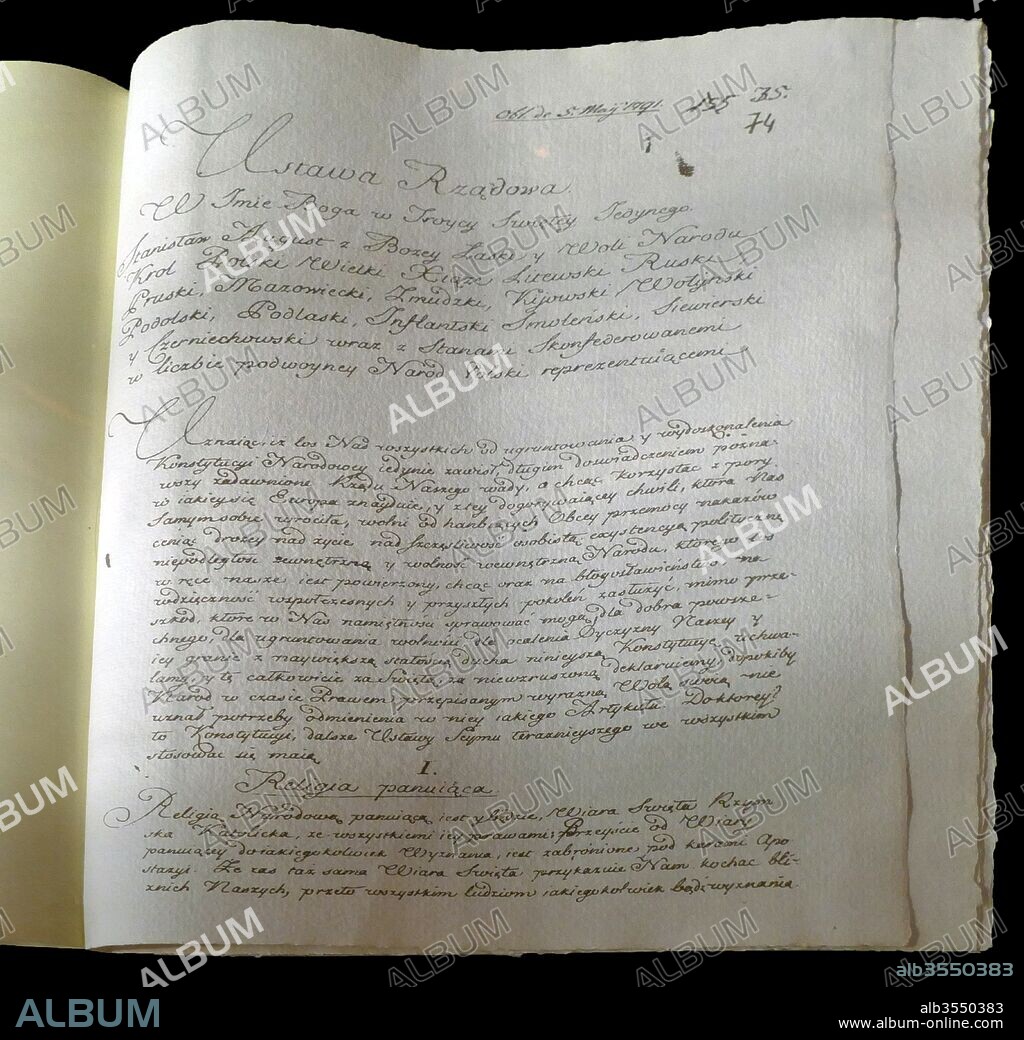 Obl. de 5. Maÿ 1791. 155 35.
74
1
Ustawa Rządowa.
W Imie Boga w Troycy Swiętey Jedynego.
Stanisław August z Bożey Łaski y Woli Narodu
Krol Polski Wielki Xiąże Litewski Ruski
Pruski, Mazowiecki, Zmudzki, Kijowski, Wołyński
Podolski, Podlaski, Inflantski Smoleński, Siewierski
y Czerniechowski wraz z Stanami Skonfederowanemi
w liczbie podwoyney Naród Polski reprezentuiącemi
Uznaiąc, iż los Nas wszystkich od ugruntowania y wydoskonalenia
Konstytucyi Narodowey iedynie zawisł, długim doswiadczeniem pozna-
wszy zadawnione Rządu Naszego wady, a chcąc korzystać z pory
w iakiey się Europa znayduie, y z tey dogorywaiącey chwili, która Nas
samym sobie wrociła, wolni od hanbiących Obcey przemocy nakazów
ceniąc drożey nad życie nad szczęśliwość osobistą, exystencyą polityczną
niepodległość zewnętrzną y wolność wewnętrzną Narodu, ktorego los
w ręce nasze iest powierzony, chcąc oraz na błogosławieństwo, na
wdzięczność współczesnych y przyszłych pokoleń zasłużyć, mimo prze-
szkód, które w Nas namiętności sprawować mogą, dla dobra powsze-
chnego, dla ugruntowania wolności, dla ocalenia Oyczyzny Naszey y
iey granic z naywiększą stałością ducha ninieyszą Konstytucyę uchwa-
lamy, y tę całkowicie za świętą, za niewzruszoną deklaruiemy, dopokiby
Naród w czasie Prawem przepisanym wyrazną Wolą swoią nie
uznał potrzeby odmienienia w niey iakiego Artykułu. Do ktorey
to Konstytucyi, dalsze Ustawy Seymu teraznieyszego we wszystkim
stosować się maią.
I.
Religia panuiąca.
Religią Narodową panuiącą iest y będzie, Wiara Swięta Rzym
ska Katolicka, ze wszystkiemi iey prawami; Przeyście od Wiary
panuiącey do iakiegokolwiek Wyznania, iest zabronione pod karami Apo
stazyi. Że zaś taż sama Wiara Swięta przykazuie Nam kochać bli-
znich Naszych, przeto wszystkim ludziom iakiegokolwiek bądź wyznania
ALBUM
alb3550383
alb3550383
www.album-online.com